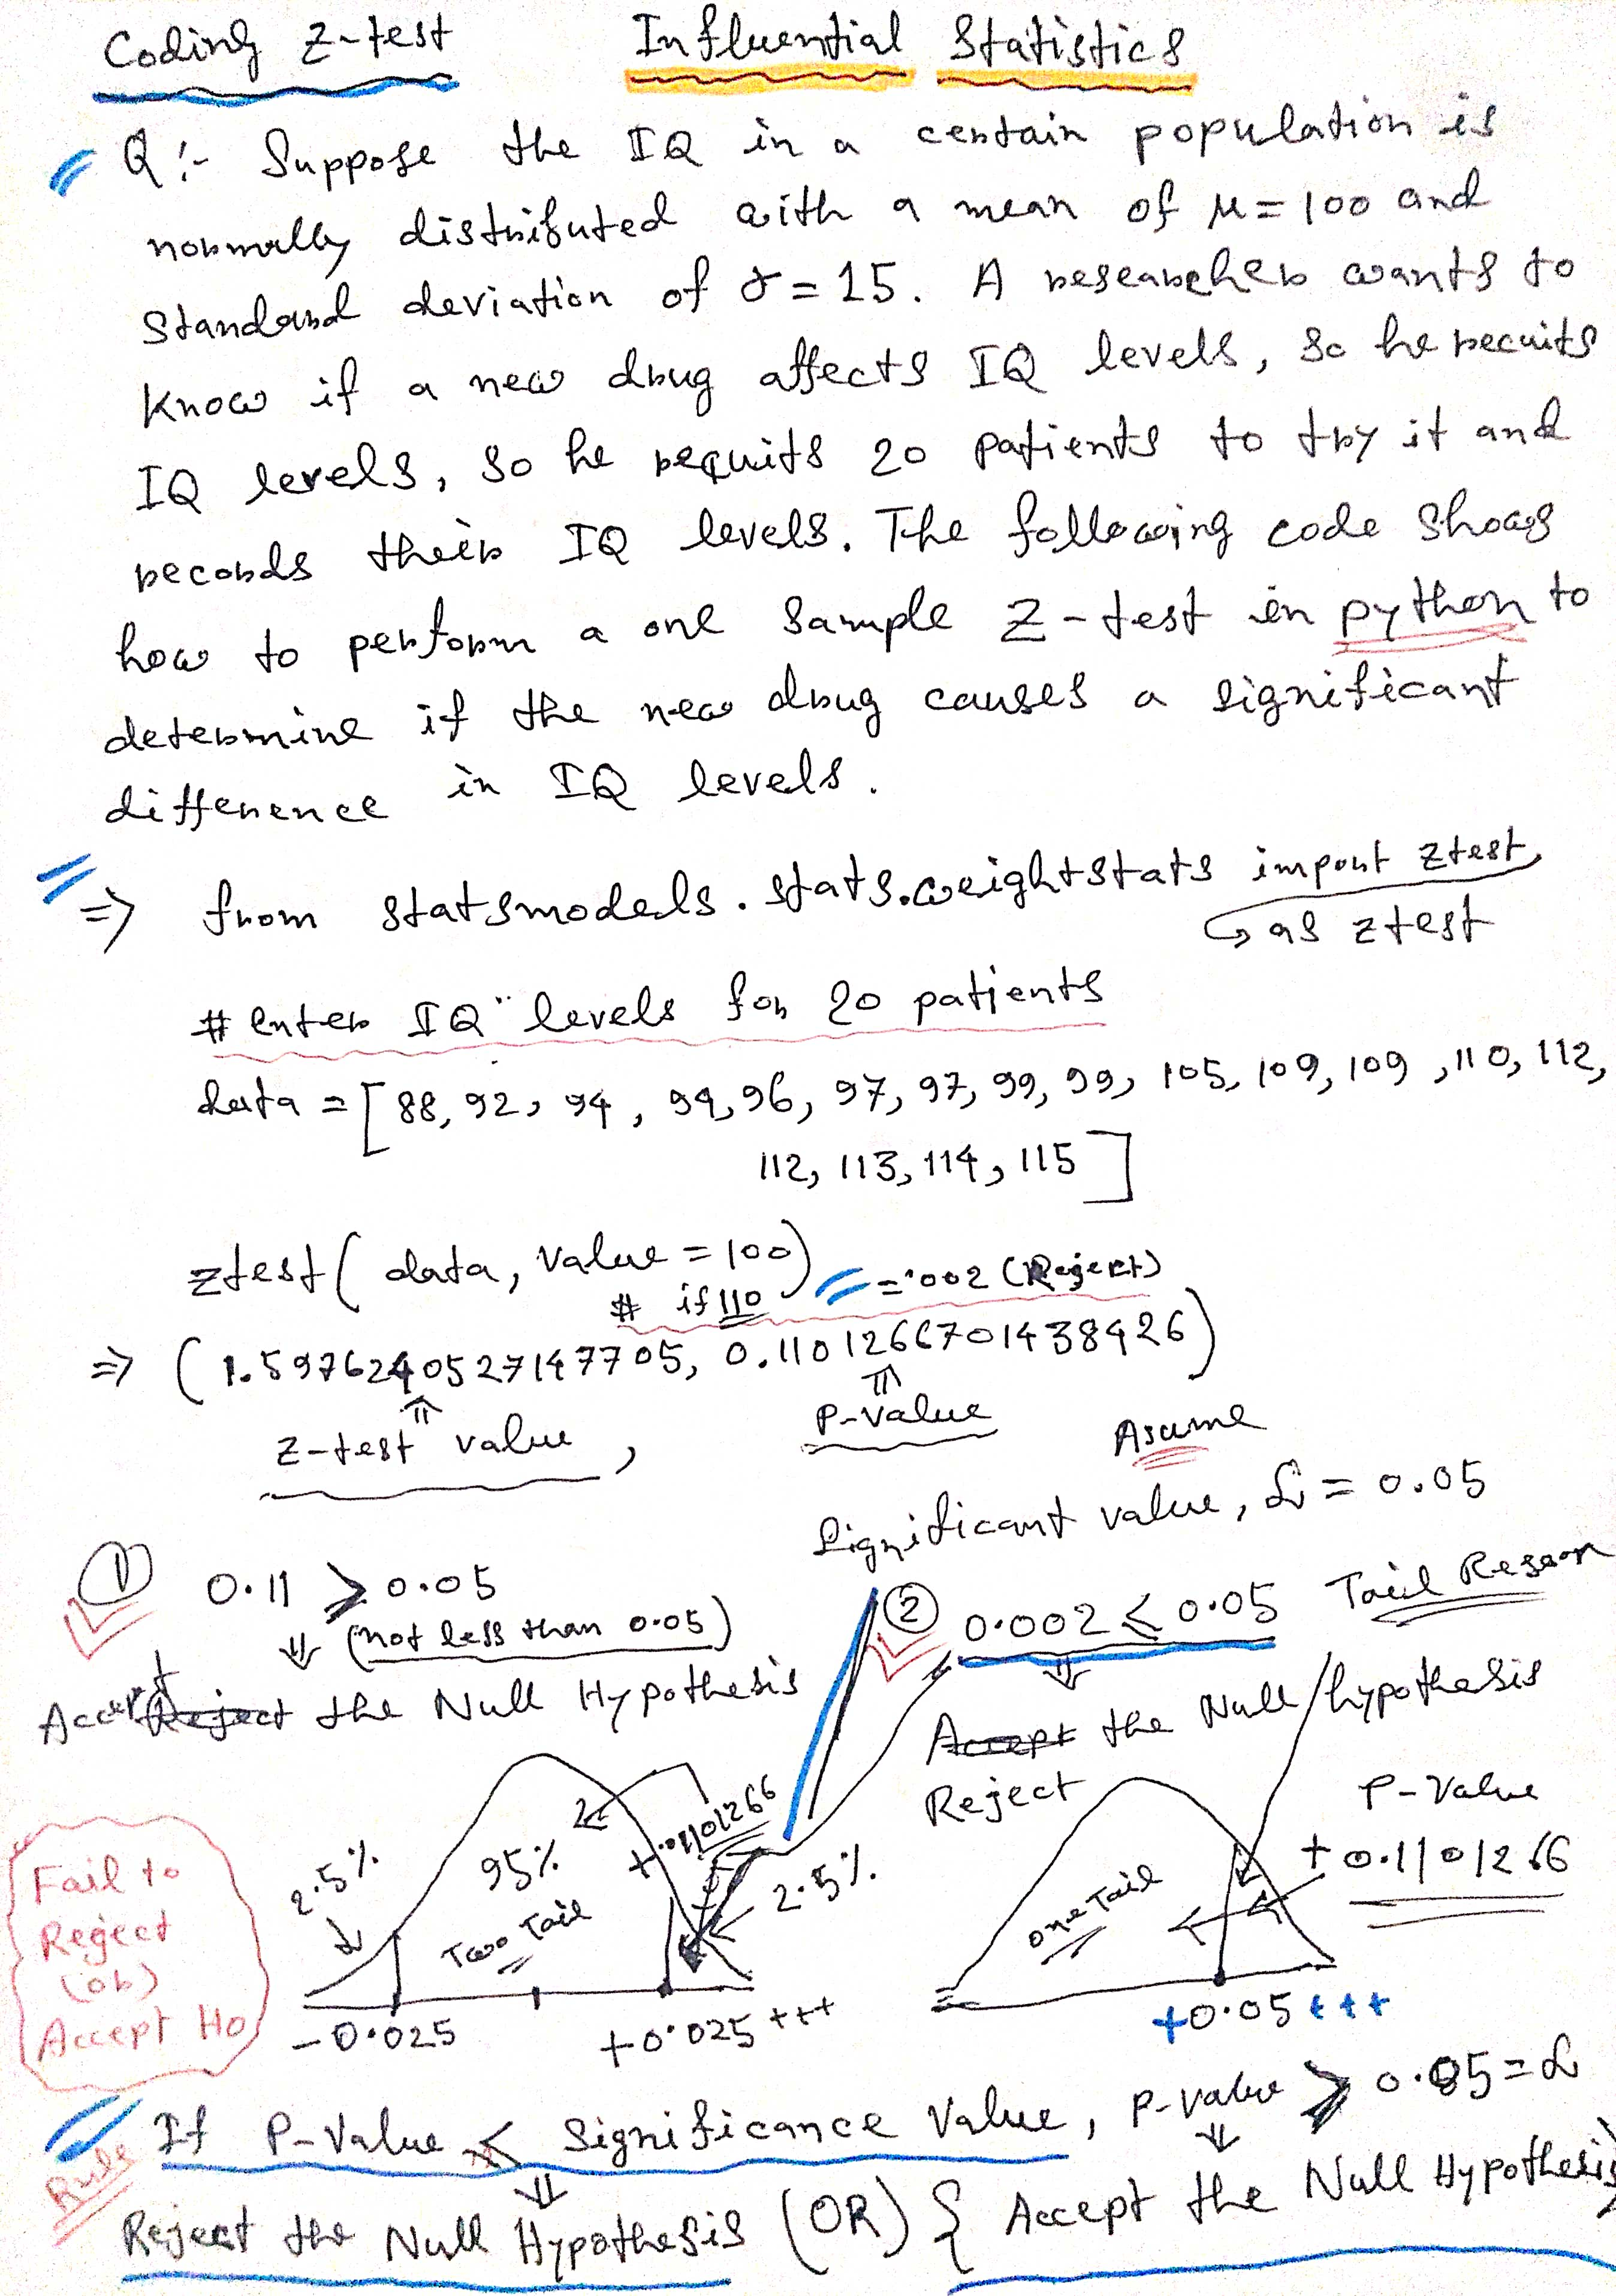 Coding Z-test Influential Statistics
Q:- Suppose the IQ in a certain population is
normally distributed with a mean of μ = 100 and
standard deviation of σ = 15. A researcher wants to
know if a new drug affects IQ levels, so he recuits
IQ levels, so he requits 20 patients to try it and
records their IQ levels. The following code shows
how to perform a one sample Z-test in python to
determine if the new drug causes a significant
difference in IQ levels.
=> from statsmodels.stats.weightstats import ztest
as ztest
# enter IQ levels for 20 patients
data = [88, 92, 94, 94, 96, 97, 97, 99, 99, 105, 109, 109, 110, 112,
112, 113, 114, 115]
ztest(data, value = 100)
# if 110 = .002 (Reject)
=> (1.5976240527147705, 0.1101266701438426)
z-test value, P-value
Asume
Significant value, α = 0.05
① 0.11 > 0.05
(not less than 0.05)
Accept Reject the Null Hypothesis
② 0.002 < 0.05 Tail Reason
Accept the Null hypothesis
Reject
2.5% 95% +0.1101266 2.5%
Two Tail
-0.025 +0.025 +++
P-Value
+0.1101266
One Tail
+0.05 +++
Fail to
Reject
(or)
Accept Ho
Rule
If P-Value < Significance Value, P-value > 0.05 = α
Reject the Null Hypothesis (OR) { Accept the Null Hypothesis